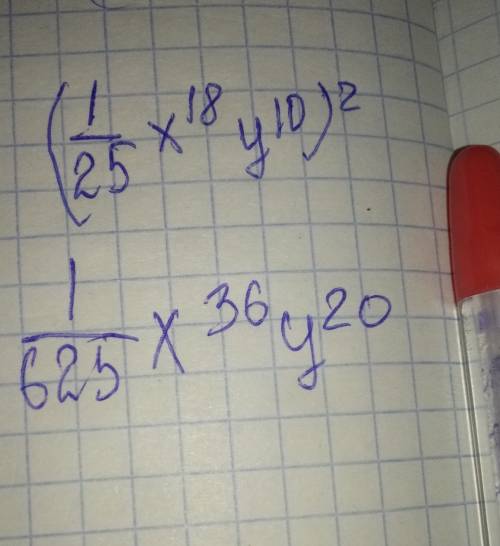 (1/25 x^18 y^10)^2
1/625 x^36 y^20